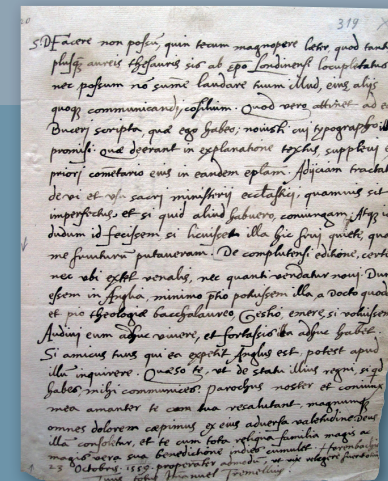 319
S. D. Facere non possum, quin tecum magnopere læter, quod tant
plusq̃ aureis thesauris sis ab epo Londinensi locupletatus
nec possum nõ sumè laudare tuum illud, eius alijs
quoq̃ communicandi, cõsilium. Quod vero attinet ad
Buceri scripta, quæ ego habeo; novisti cuj typographo
promisi. Quæ deerant in explanatione textus supplevi
priori cõmetario eius in eandem eplam. Adijciam tractat
de vi et usu sacri ministerij ecclastici, quamvis sit
imperfectus, et si quid aliud habuero, coniungam. Atq̃
dudum id fecissem si licuisset illa hic frui quiete, qua
me fruiturũ putaveram. De complutensi editione, certe
nec ubi extet venalis, nec quanti vendatur novi. Dum
essem in Anglia, minimo ptio potuissem illa, a docto quod
et pio theologiæ bacchalaureo, Gesho, emere, si voluissem
Audivi eum adhuc vivere, et fortassis ea adhuc habet
Si amicus tuus qui ea expetit Anglus est, potest apud
illũ inquirere. Quæso te, ut de statu illius regni, si qd
habes, mihi communices. Parochus noster et coniunx
mea amanter te cum tua resalutant, magnumq̃
omnes dolorem cæpimus ex eius adversa valetudine. Deus
illã consoletur, et te cum tota reliqua familia magis ac
magis vera sua benedictione indies cumulet.
23 Octobris. 1559. properater admodũ, ut vix relegere
Tuus totus Imanuel Tremellius